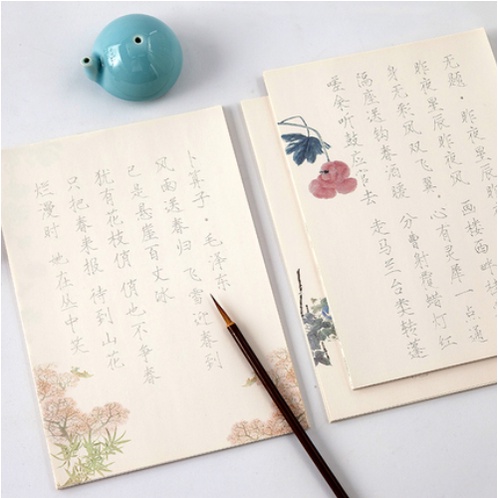 无题·昨夜星辰昨
昨夜星辰昨夜风 画楼西畔桂
身无彩凤双飞翼 心有灵犀一点通
隔座送钩春酒暖 分曹射覆蜡灯红
嗟余听鼓应官去 走马兰台类转蓬
卜算子·毛泽东
风雨送春归 飞雪迎春到
已是悬崖百丈冰
犹有花枝俏 俏也不争春
只把春来报 待到山花
烂漫时 她在丛中笑